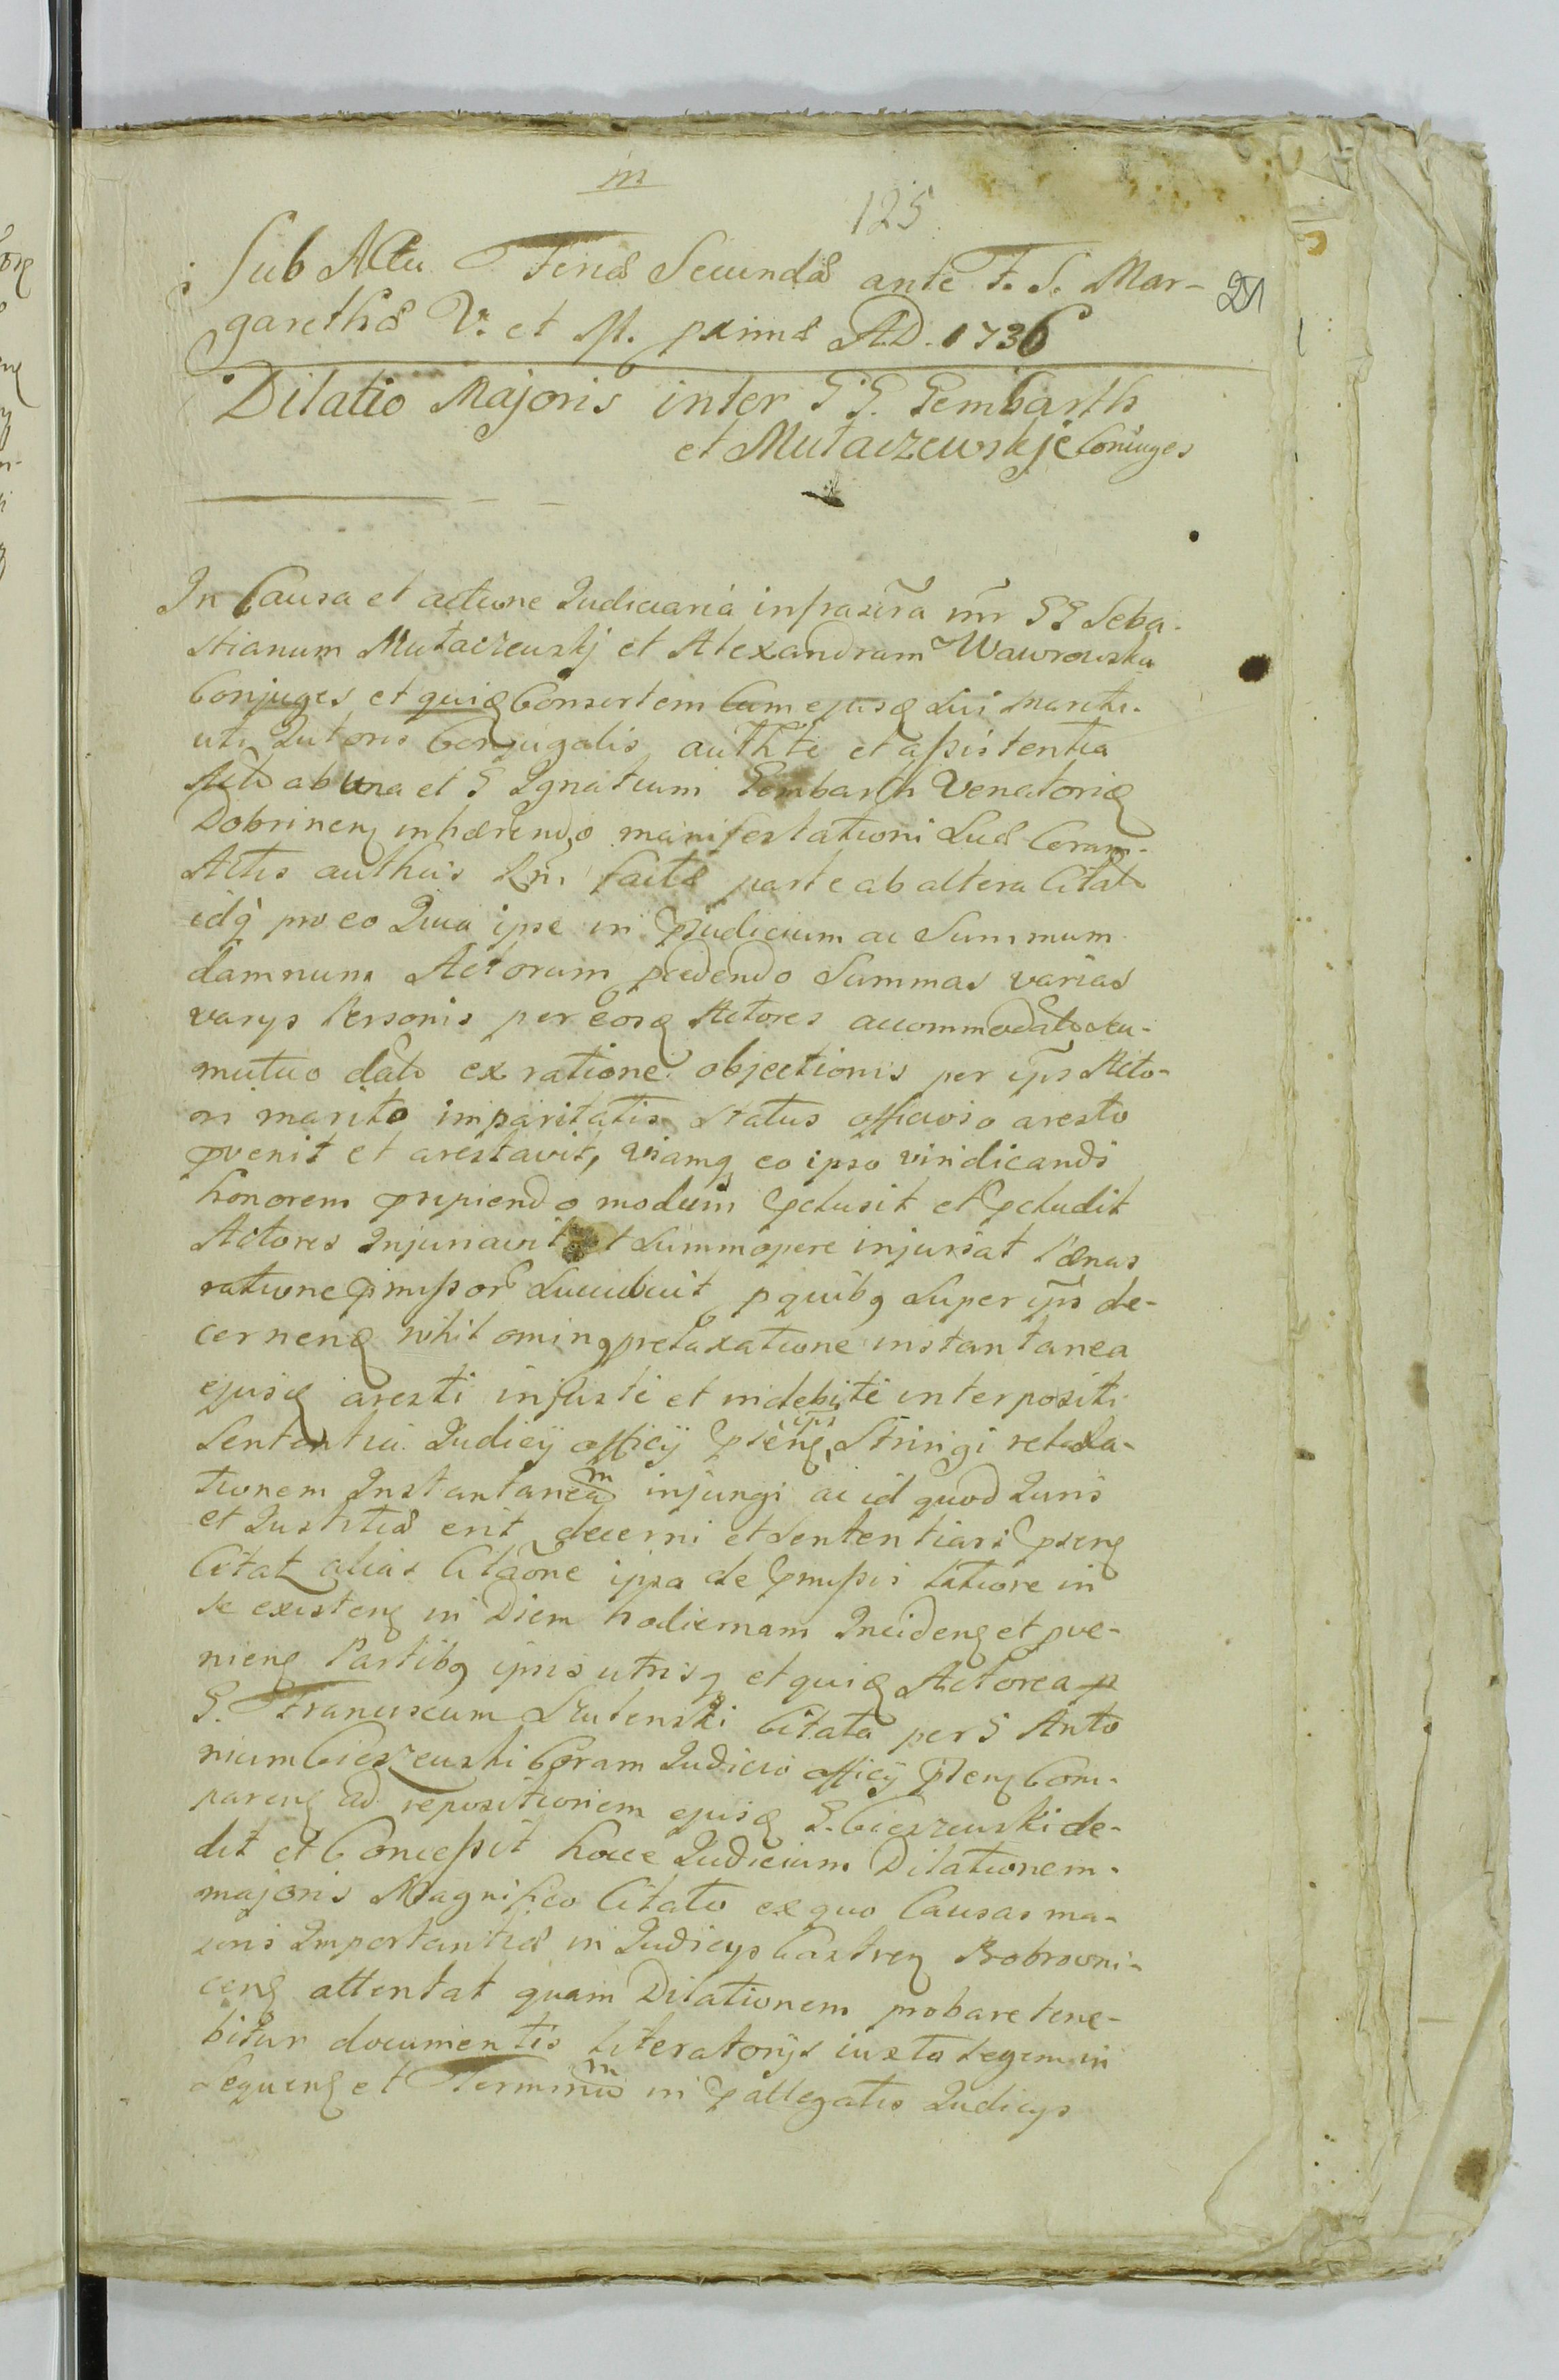 m
125.
21
Sub Actu Feriæ Secundæ ante F. S. Mar-
garethæ V. et M. primæ A.D. 1736
Dilatio Majoris inter GG. Gembarth
et Mutaczewskje Coniuges
In Causa et actione Judiciaria infrascra inr GG Seba-
stianum Mutaczewskj et Alexandram Wawrowska
Conjuges et quidẽ Consortem Cum ejusdẽ sui mariti
uti Tutoris Conjugalis auththe et assistentia
ab una et G Ignatium Gembarth Venatoridẽ
Dobrinen inhærendo manifestationi suæ Coram
Actis authcis factæ parte ab altera Citat
idq pro eo Quia ipse in pjudicium ac Summum
damnum Actorum Summas varias
varys Personis per eosdẽ Actores accommodato seu
mutuo dato ex ratione objectionis per ipm Acto-
ri marito imparitatis status officioso aresto
pvenit et arestavit, viamq eo ipso vindicandi
honorem pripiendo modum pclusit et pcludit
Actores Injuriavit et Summopere injuriat Pænas
ratione pmissor Succubuit p quibq super ipm de-
cernen nihil ominq pretaxatione instantanea
ejusdẽ aresti injuste et indebite interpositi
Sententia Judicij officij psen ips Stringi relaxa-
tionem Instantaneam injungi ac id quod Juris
et Justitiæ erit decerni et Sententiari psen
Citat alias Citaone ipsa de pmissis latiore in
se existen in Diem hodiernam Inciden et pve-
nien Partibq ipsis utrisq et quidẽ Actorea p
G. Franciscum Rutenski Citata per G Anto
nium Cieszewski Coram Judicio officij psen Com-
paren ad repositionem ejusdẽ G. Cieszewski de-
dit et Concessit hocce Judicium Dilationem
majoris Magnifico Citato ex quo Causas ma-
joris Importantiæ in Judicys Castren Bobrowni-
cen attentat quam Dilationem probare tene-
bitur documentis literatorijs iuxta legem in
sequen et Terminum in pallegatis Judicys